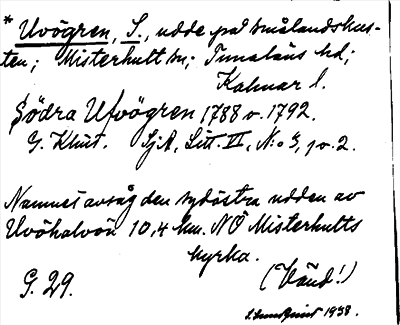 * Uvögren, S., udde på smålandskus-
ten; Misterhult sn; Tunaläns hd;
Kalmar l.
Södra Ufvögren 1788 o. 1792.
G. Klint. SjA, Litt. II, N:o 3, 1 o. 2.
Namnet avsåg den sydöstra udden av
Uvöhalvön 10,4 km. NO Misterhults
kyrka.
(Vänd!)
G. 29.
S. Lundqvist 1938.